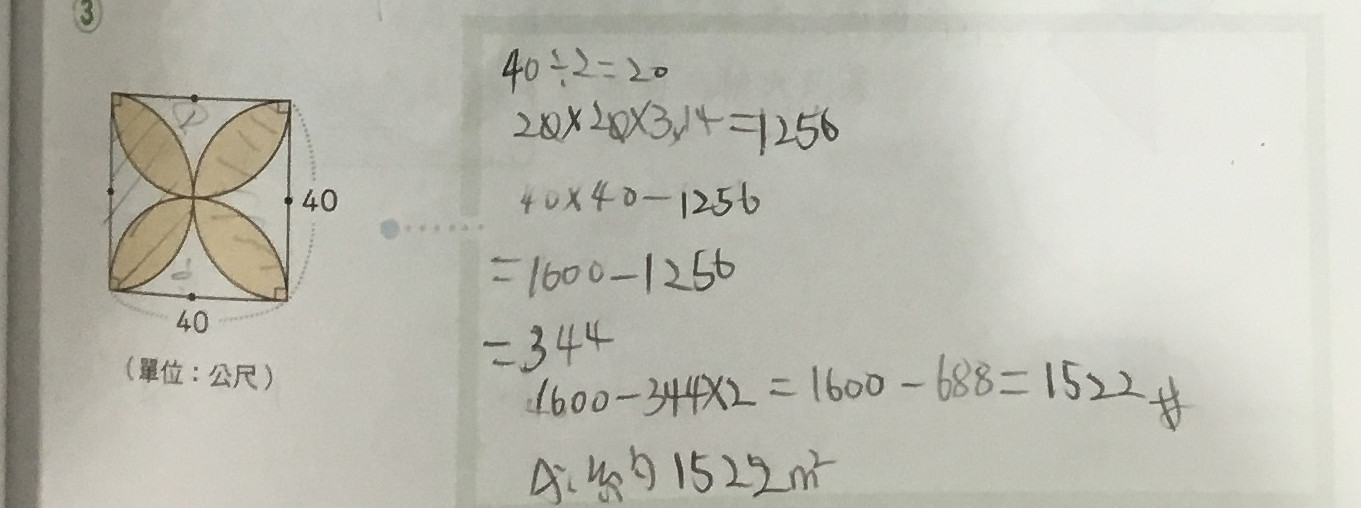 3
40÷2=20
20×20×3.14=1256
40×40-1256
=1600-1256
=344
1600-344×2=1600-688=1522#
A:約1522m²
40
40
(單位:公尺)